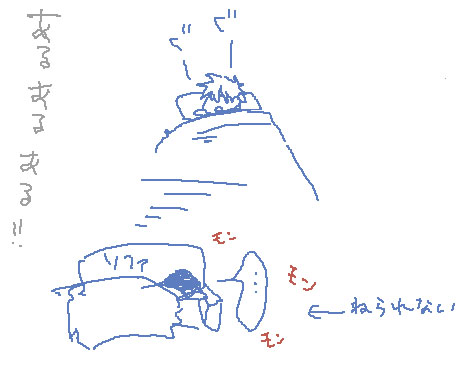 あるあるある!!
ぐー
ぐー
ソファ
モン
モン
モン
…
←ねられない